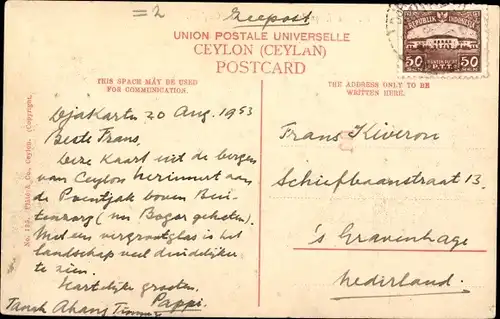 =2 Zeepost
UNION POSTALE UNIVERSELLE
CEYLON (CEYLAN)
POSTCARD
REPUBLIK INDONESIA
50 50
P.T.T.
THIS SPACE MAY BE USED
FOR COMMUNICATION.
THE ADDRESS ONLY TO BE
WRITTEN HERE.
Djakarta 20 Aug. 1953
Beste Frans,
Deze Kaart uit de bergen
van Ceylon herinnert aan
de Poentjak boven Bui-
tenzorg (nu Bogor geheten).
Met een vergrootglas is het
landschap veel duidelijker
te zien.
Hartelijke groeten.
Pappi.
Tanah Abang
Frans Kiveron
Schiefbaanstraat 13.
's Gravenhage
Nederland.
Co., Ceylon. (Copyright.)